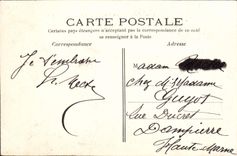 CARTE POSTALE
Certains pays étrangers n'acceptent pas la correspondance de ce côté
se renseigner à la Poste
Correspondance
Adresse
Je t'embrasse
Madame
chez M. Madame
Guyot
Rue Ducret
Dampierre
Haute Marne